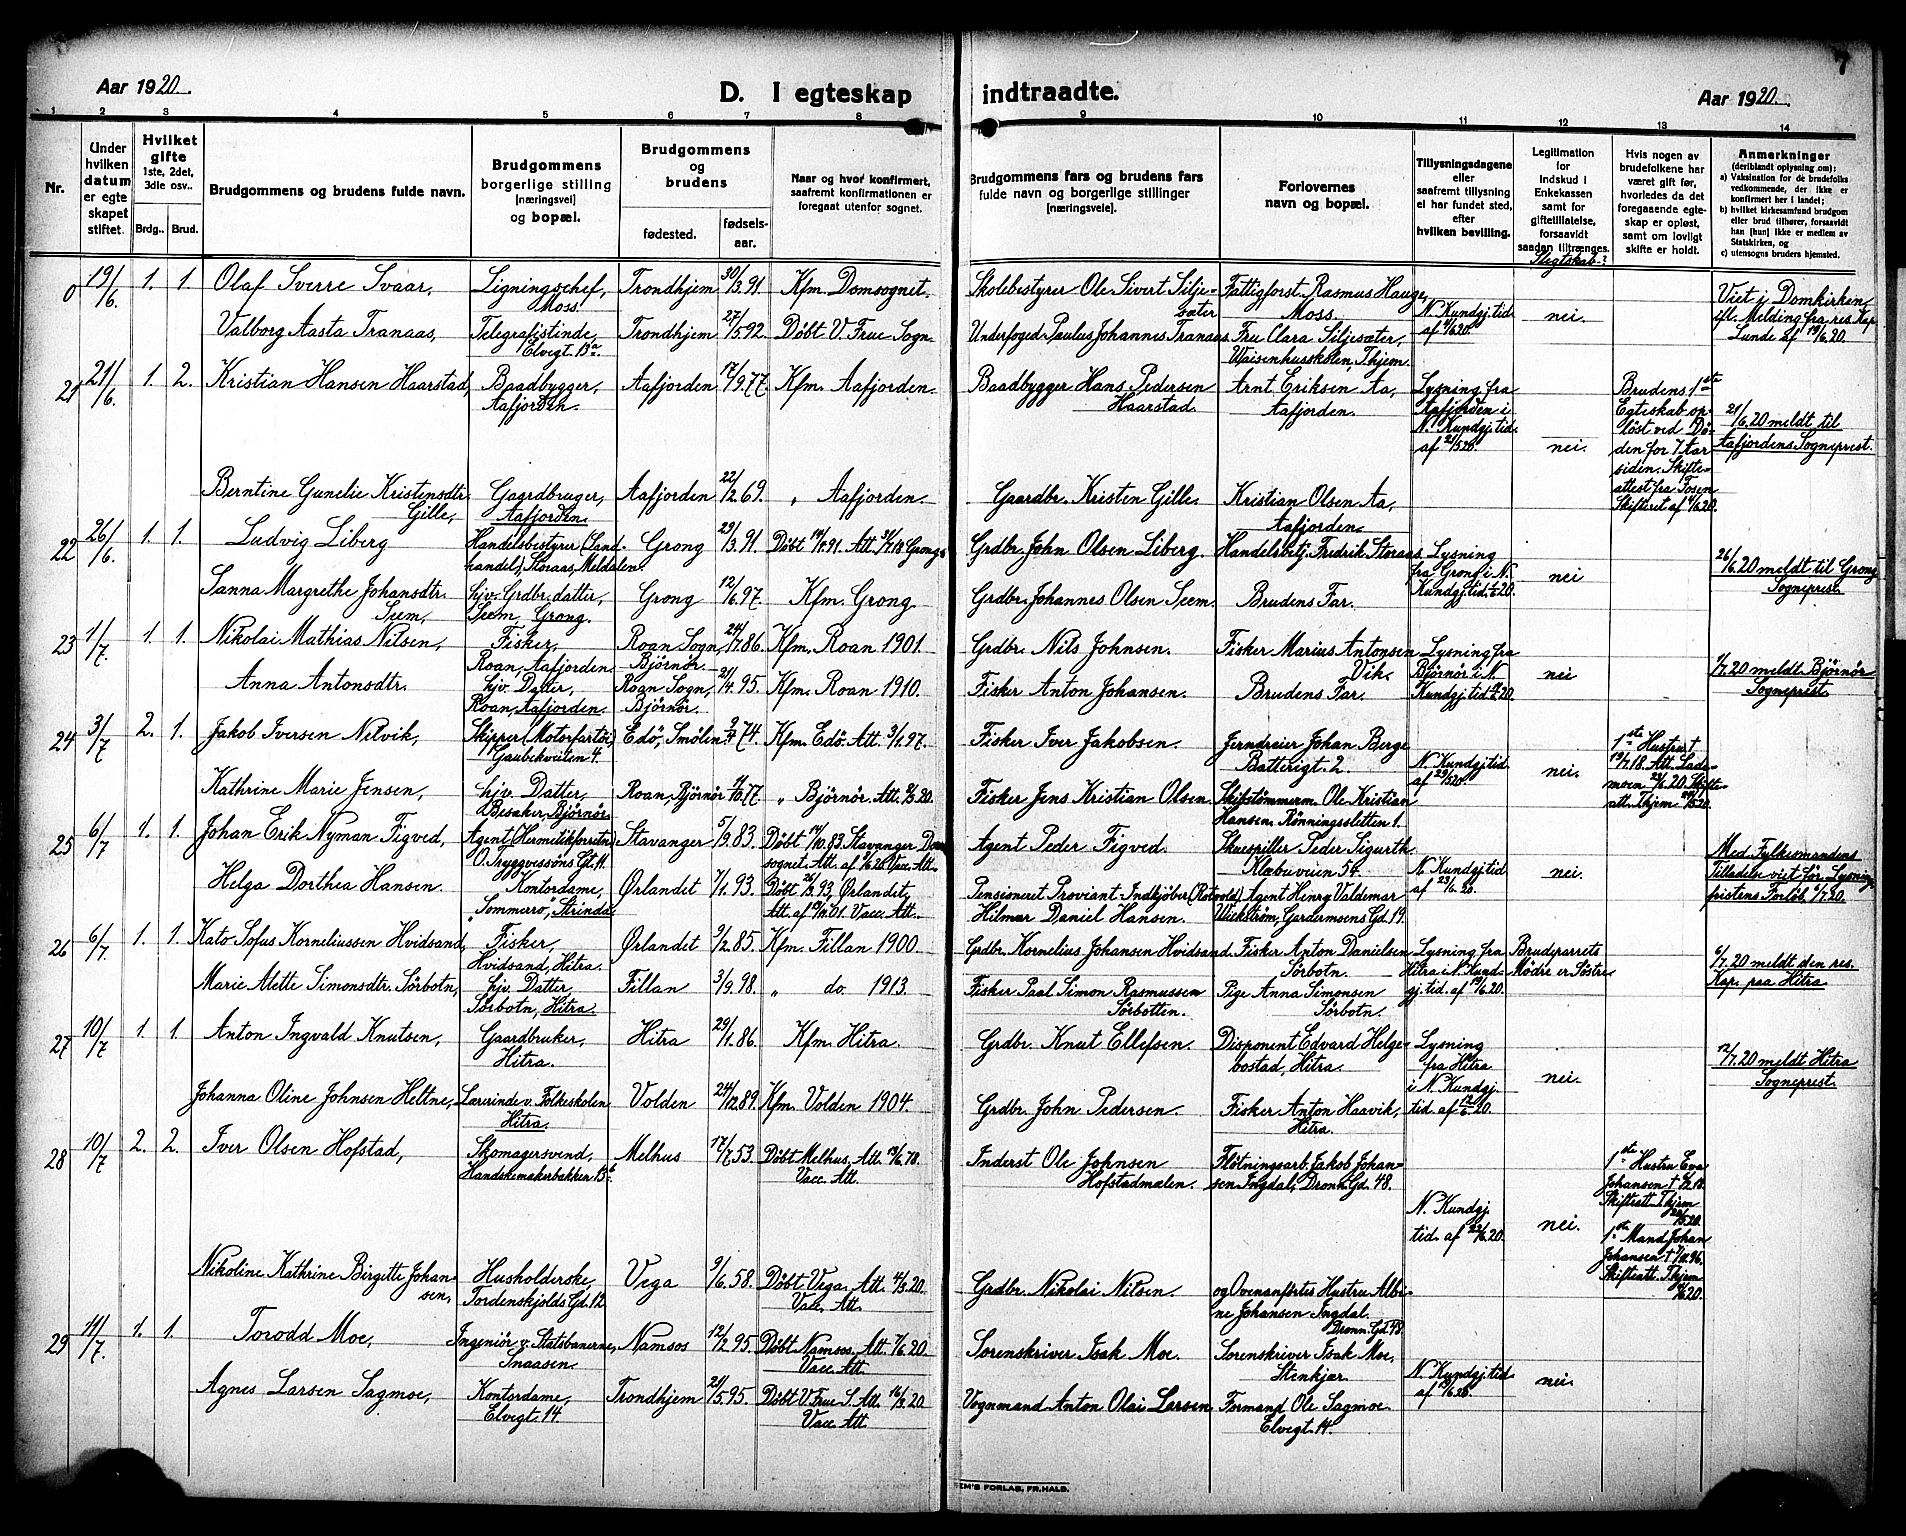 7
Aar 1920.
D. I egteskap indtraadte.
Aar 1920.
1 2 3 4 5 6 7 8 9 10 11 12 13 14
Nr.
Under hvilken datum er egteskapet stiftet.
Hvilket gifte 1ste, 2det, 3die osv..
Brdg.. Brud.
Brudgommens og brudens fulde navn.
Brudgommens borgerlige stilling [næringsvei] og bopæl.
Brudgommens og brudens
fødested. fødsels-aar.
Naar og hvor konfirmert, saafremt konfirmationen er foregaat utenfor sognet.
Brudgommens fars og brudens fars fulde navn og borgerlige stillinger [næringsveie].
Forlovernes navn og bopæl.
Tillysningsdagene eller saafremt tillysning ei har fundet sted, efter hvilken bevilling.
Legitimation for indskud i Enkekassen samt for giftetillatelse, forsaavidt saadan tiltrænges.
Slegtskab?
Hvis nogen av brudefolkene har været gift før, hvorledes da det foregaaende egteskap er opløst, samt om lovligt skifte er holdt.
Anmerkninger (deriblandt oplysning om): a) Vaksination for de brudefolks vedkommende, der ikke er konfirmert her i landet; b) hvilket kirkesamfund brudgom eller brud tilhører, forsaavidt han [hun] ikke er medlem av Statskirken, og c) utensogns bruders hjemsted.
0 19/6. 1. 1. Olaf Sverre Svaar, Ligningschef, Moss. Trondhjem 30/3.91 Kfm. Domsognet. Skolebestyrer Ole Sivert Siljesæter Fattigforst. Rasmus Hauge, Moss. N. Kundgj.tid. af 1/6 20. nei. Viet i Domkirken, ifl. Melding fra res. Kap. Lunde af 19/6.20.
Valborg Aasta Tranaas, Telegrafistinde, Elvegt. 13a Trondhjem 27/5 92. Døbt V. Frue Sogn. Underfoged Paulus Johannes Tranaas Fru Clara Siljesæter, Waisenhusskolen, Thjem.
21 21/6. 1. 2. Kristian Hansen Haarstad, Baadbygger, Aafjorden. Aafjorden 17/9.77. Kfm. Aafjorden. Baadbygger Hans Pedersen Haarstad. Arnt Eriksen Aa, Aafjorden. Lysning fra Aafjorden i N. Kundgj.tid. af 21/5 20. nei. Brudens 1ste Egteskab opløst ved Døden for 7 Aar siden. Skifteattest fra Fosen Skifteret af 1/6 20. 21/6.20 meldt til Aafjordens Sogneprest.
Berntine Gunelie Kristensdtr. Gille, Gaardbruger, Aafjorden. Aafjorden 22/2 69. " Aafjorden. Gaardbr. Kristen Gille. Kristian Olsen Aa, Aafjorden.
22 26/6. 1. 1. Ludvig Liberg Handelsbestyrer (Landhandel), Storaas, Meldalen. Grong 29/3.91 Døbt 19/4.91. Att. Grong. Grdbr. John Olsen Liberg. Handelsbetj. Fredrik Storaas. Lysning fra Grong i N. Kundgj.tid. 20. nei 26/6.20 meldt til Grong Sogneprest.
Sanna Margrethe Johansdtr. Seem, hjv. Grdbr. datter, Seem, Grong. Grong 12/6.97. Kfm. Grong. Grdbr. Johannes Olsen Seem. Brudens Far.
23 1/7. 1. 1. Nikolai Mathias Nilsen, Fisker, Roan, Aafjorden. Roan Sogn, Bjørnør. 24/7.86. Kfm. Roan 1901. Grdbr. Nils Johnsen. Fisker Marius Antonsen Vik. Lysning fra Bjørnør i N. Kundgj.tid 20. nei 1/7.20 meldt Bjørnør Sogneprest.
Anna Antonsdtr. hjv. Datter, Roan, Aafjorden. Roan Sogn, Bjørnør. 21/4.95. Kfm. Roan 1910. Fisker Anton Johansen. Brudens Far.
24 3/7 2. 1. Jakob Iversen Nelvik, Skipper (Motorfartøi) Gaubekveiten 4. Edø, Smølen 74. Kfm. Edø. Att. 3/1.97. Fisker Iver Jakobsen. Jerndreier Johan Berge Batterigt. 2. N. Kundgj.tid. af 29/5 20. nei. 1ste Hustru † 19/7.18. Att. Lademoen 20. Skifteatt. Thjem 20.
Kathrine Marie Jensen, hjv. Datter, Besaker, Bjørnør. Roan, Bjørnør 77. " Bjørnør. Att. 20. Fisker Jens Kristian Olsen. Skibstømmerm. Ole Kristian Hansen. Rønningsletten 1.
25 6/7 1. 1. Johan Erik Nyman Figved, Agent (Hermetikforretn.) O. Tryggvessøns Gt. 11. Stavanger 5/9.83. Døbt 14/10.83. Stavanger Domsognet. Att. af 20. Vacc. Att. Agent Peder Figved. Skuespiller Peder Sigurth Klæbuveien 54. N. Kundgj.tid af 23/6.20. nei. Med Fylkesmandens Tilladelse viet før Lysningsfristens Forløb. 6/7.20.
Helga Dorthea Hansen. Kontordame, "Sommerro", Strinda. Ørlandet 7/1.93. Døbt 93, Ørlandet, Att. af 01. Vacc. Att. Pensioneret Proviant-Indkjøber (Rotvold) Hilmar Daniel Hansen. Agent Henry Valdemar Wickstrøm, Gardemoens Gd. 19.
26 6/7. 1. 1. Kato Sofus Korneliussen Hvidsand, Fisker, Hvidsand, Hitra. Ørlandet 9/2.85. Kfm. Fillan 1900 Grdbr. Kornelius Johansen Hvidsand. Fisker Anton Danielsen Sørbotn. Lysning fra Hitra i N. Kundgj.tid. af 19/6.20. Brudeparrets Mødre er Søstre 6/7.20 meldt den res. Kap. paa Hitra.
Marie Alette Simonsdtr. Sørbotn, hjv. Datter, Sørbotn, Hitra. Fillan 3/9.98. " do. 1913. Fisker Paal Simon Rasmussen Sørbotten. Pige Anna Simonsen Sørbotn.
27 10/7 1. 1. Anton Ingvald Knutsen, Gaardbruker, Hitra. Hitra 29/1.86. Kfm. Hitra. Grdbr. Knut Ellefsen. Disponent Edvard Helgebostad, Hitra. Lysning fra Hitra i N. Kundgj.tid. af 20. nei. 12/7.20 meldt Hitra Sogneprest.
Johanna Oline Johnsen Heltne, Lærerinde v. Folkeskolen Hitra. Volden 24/12.89. Kfm. Volden 1904. Grdbr. John Pedersen. Fisker Anton Haavik, Hitra.
28 10/7 2. 2. Iver Olsen Hofstad, Skomagersvend, Handskemakerbakken 13b. Melhus 17/7.53. Døbt Melhus, Att. 19/6.70. Vacc. Att. Inderst Ole Johnsen Hofstadmælen. Fløtningsarb. Jakob Johansen Ingdal, Dronn. Gd. 48. N. Kundgj.tid. af 22/6.20. nei. 1ste Hustru Eva Johansen † 18. Skifteatt. Thjem 20. 1ste Mand Johan Johansen † 96. Skifteatt. Thjem 20.
Nikoline Kathrine Birgitte Johansen, Husholderske, Tordenskjolds Gd. 12 Vega 9/6.58. Døbt Vega. Att. 4/3.20. Vacc. Att. Grdbr. Nikolai Nilsen og Ovenanførtes Hustru Albine Johansen Ingdal. Dronn. Gd. 48.
29 11/7. 1. 1. Torodd Moe, Ingeniør v. Statsbanerne, Snaasen. Namsos 12/2 95. Døbt Namsos, Att. 7/6.20. Vacc. Att. Sorenskriver Isak Moe. Sorenskriver Isak Moe, Stenkjær. N. Kundgj.tid. af 19/6.20. nei.
Agnes Larsen Sagmoe, Kontordame, Elvegt. 14 Trondhjem 21/5 95. Døbt V. Frue S. Att. 16/3.20 Vacc. Att. Vognmand Anton Olai Larsen Formand Ole Sagmoe. Elvegt. 14.
EM'S FORLAG, FR.HALD.